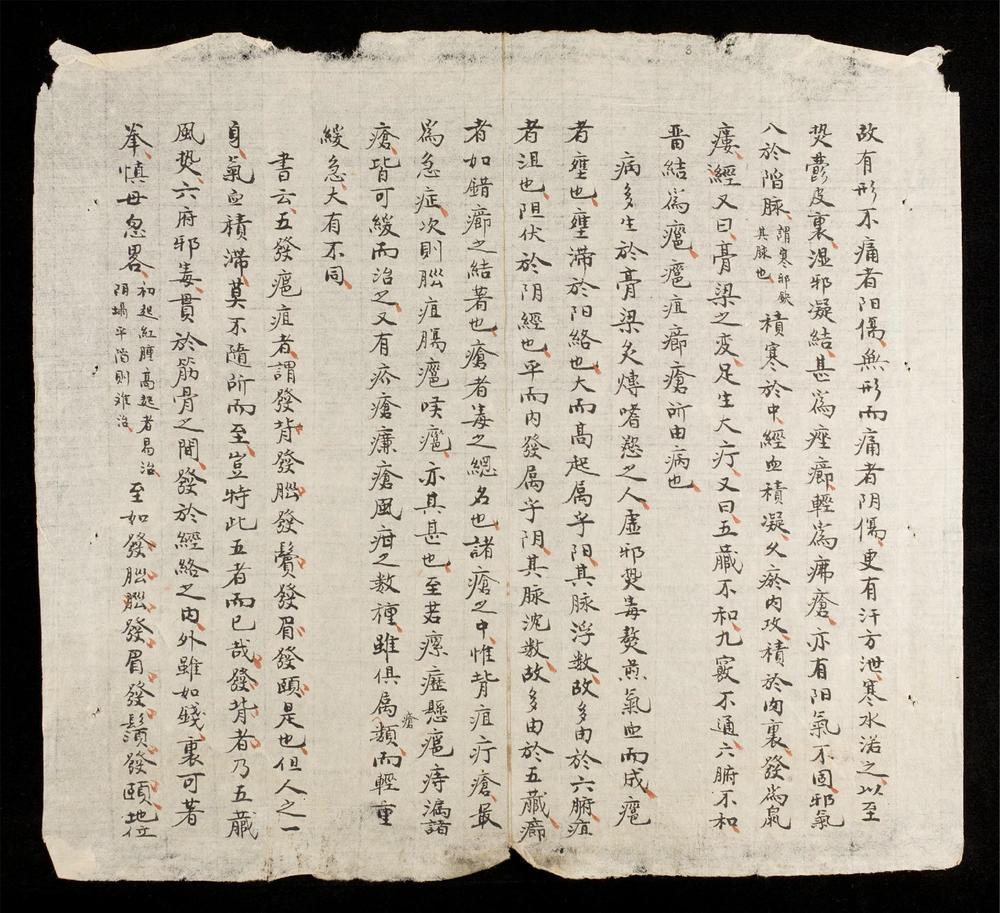 故有形不痛者阳傷、無形而痛者阴傷、更有汗方泄、寒水渃之、以至
㷫鬱皮裏、湿邪凝結、甚為痤癤、輕為疿瘡、亦有阳氣不固、邪氣
八於陷脉、謂寒邪歃其脉也、積寒於中、經血積凝、久瘀内攻、積於肉裏、發為鼠
瘻、經又曰、膏梁之变、足生大疔、又曰、五藏不和、九竅不通、六腑不和
畱結為癰、癰疽癤瘡所由病也、
病多生於膏梁炙煿嗜慾之人、虚邪㷫毒、熬煎氣血而成癰
者壅也、壅滞於阳絡也、大而高起、属乎阳、其脉浮数、故多由於六腑、疽
者沮也、阻伏於阴經也、平而内發、属乎阴、其脉沈数、故多由於五藏、癤
者如錯癤之結著也、瘡者毒之緫名也、諸瘡之中、惟背疽疔瘡、最
為急症、次則腦疽腸癰喉癰、亦其甚也、至若瘰癧懸癰痔漏諸
瘡、皆可緩而治之、又有疥瘡臁瘡風疳之数種、雖俱属瘡類、而輕重
緩急、大有不同、
書云、五發癰疽者、謂發背、發腦、發鬢、發眉、發頤是也、但人之一
身、氣血積滞、莫不隨所而至、豈特此五者而已哉、發背者、乃五藏
風㷫、六府邪毒、貫於筋骨之間、發於經絡之内、外雖如錢、裏可著
拳、慎毋忽畧、初起紅腫高起者易治阴塌平陷則难治、至如發腦、腦發、眉發、鬚發、頤、地位